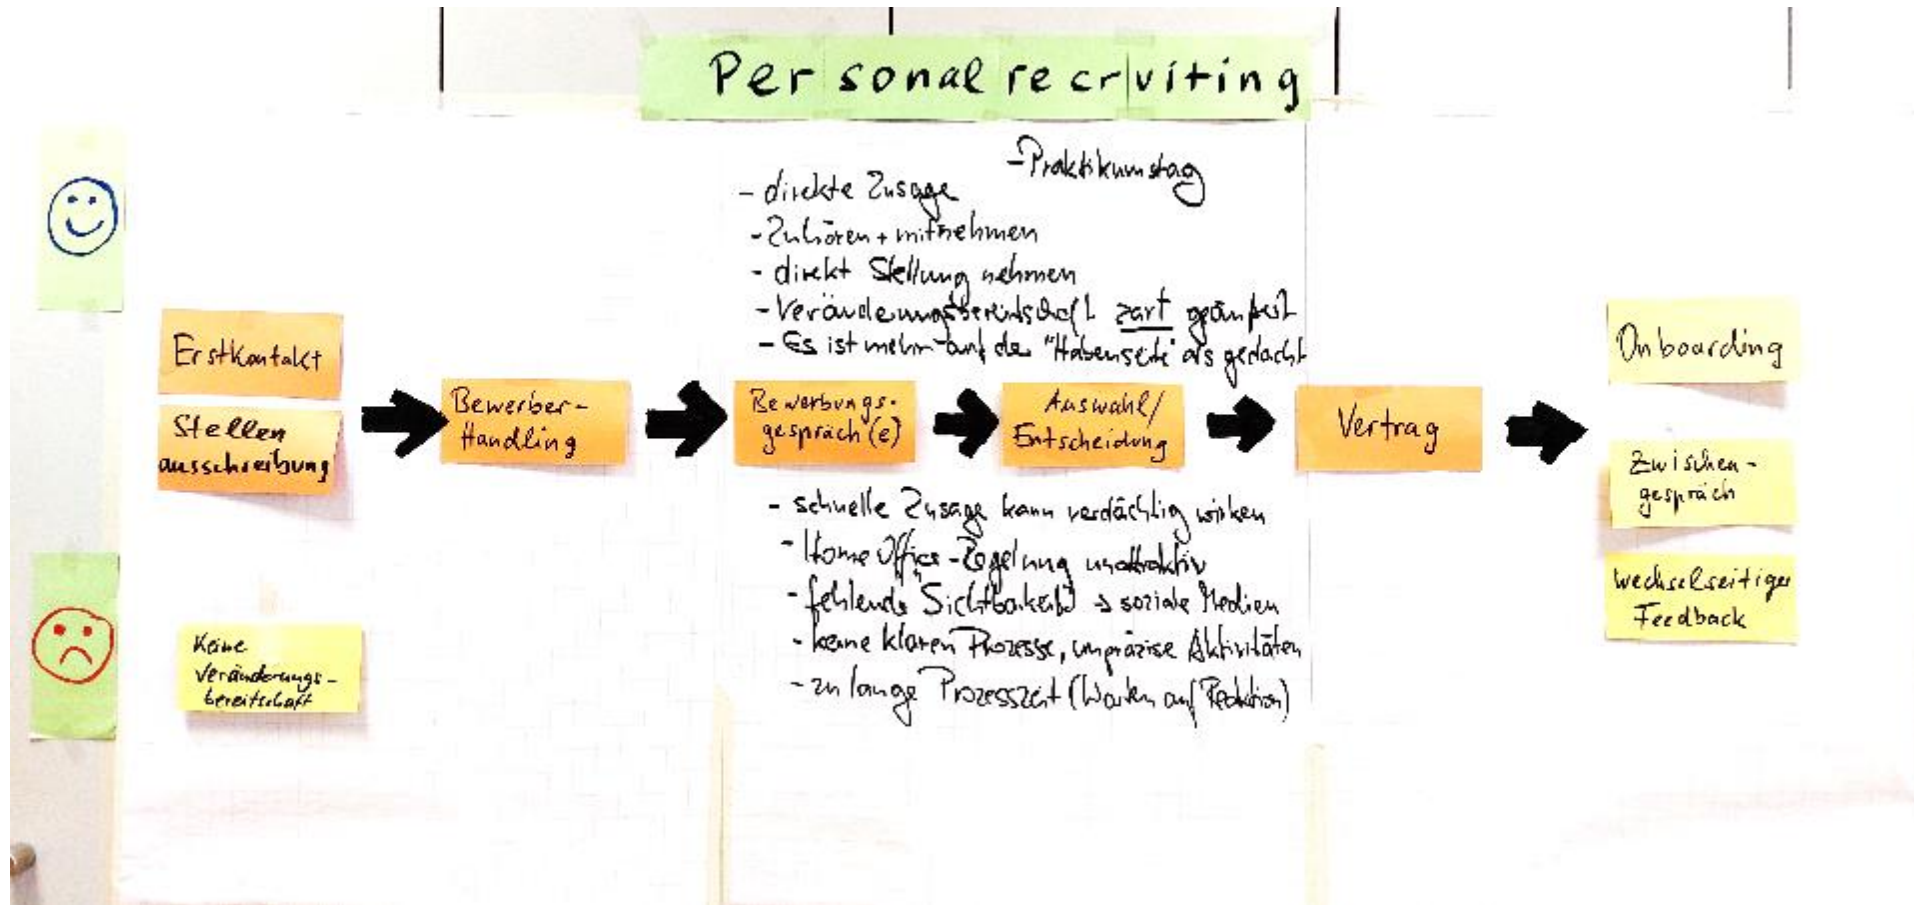 Personalrecruiting
- Praktikumstag
- direkte Zusage
- Zuhören + mitnehmen
- direkt Stellung nehmen
- Veränderungsbereitschaft zart geäußert
- Es ist mehr auf der "Habenseite" als gedacht
Erstkontakt
Stellen
ausschreibung
Bewerber-
Handling
Bewerbungs-
gespräch(e)
Auswahl/
Entscheidung
Vertrag
Onboarding
Zwischen-
gespräch
wechselseitiges
Feedback
- schnelle Zusage kann verdächtig wirken
- Home Office-Regelung unattraktiv
- fehlende "Sichtbarkeit" → soziale Medien
- keine klaren Prozesse, unpräzise Aktivitäten
- zu lange Prozesszeit (Warten auf Reaktion)
Keine
Veränderungs-
bereitschaft